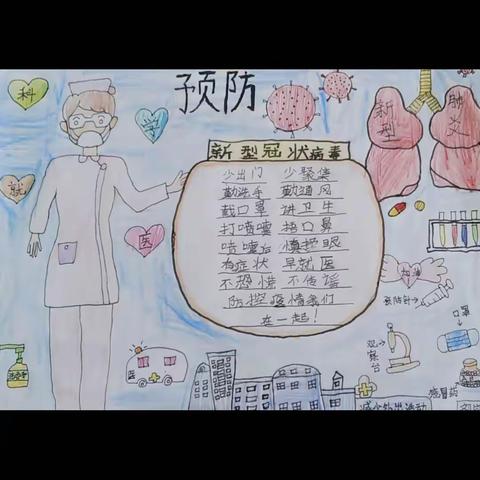 预防
科
学
就
医
新型
肺炎
新型冠状病毒
少出门 少聚集
勤洗手 勤通风
戴口罩 讲卫生
打喷嚏 捂口鼻
喷嚏后 慎揉眼
有症状 早就医
不恐慌 不传谣
防控疫情我们
在一起！
加油
预防针→
口罩
观察台
医
感冒药